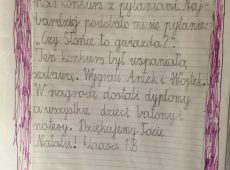 nas konkurs z pytaniami. Naj-
bardziej podobało mi się pytanie:
„Czy Słońce to gwiazda?"
Ten konkurs był wspaniałą
zabawą. Wygrali Antek i Wojtek.
W nagrodę dostali dyplomy
a wszystkie dzieci balony i
notesy. Dziękujemy Tacie
Natalii! klasa 1B